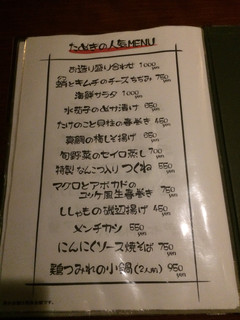 たぬきの人気MENU
お造り盛り合わせ 1000yen
蛸とキムチのチーズちぢみ 750yen
海鮮サラダ 1000yen
水茄子のぬか漬け 650yen
たけのこと貝柱の春巻き 450yen
真鯛の梅しそ揚げ 650yen
旬野菜のセイロ蒸し 700yen
特製なんこつ入りつくね 550yen
マグロとアボカドの
ユッケ風生春巻き 750yen
ししゃもの磯辺揚げ 450yen
メンチカツ 550yen
にんにくソース焼そば 750yen
鶏つみれの小鍋(2人前) 950yen